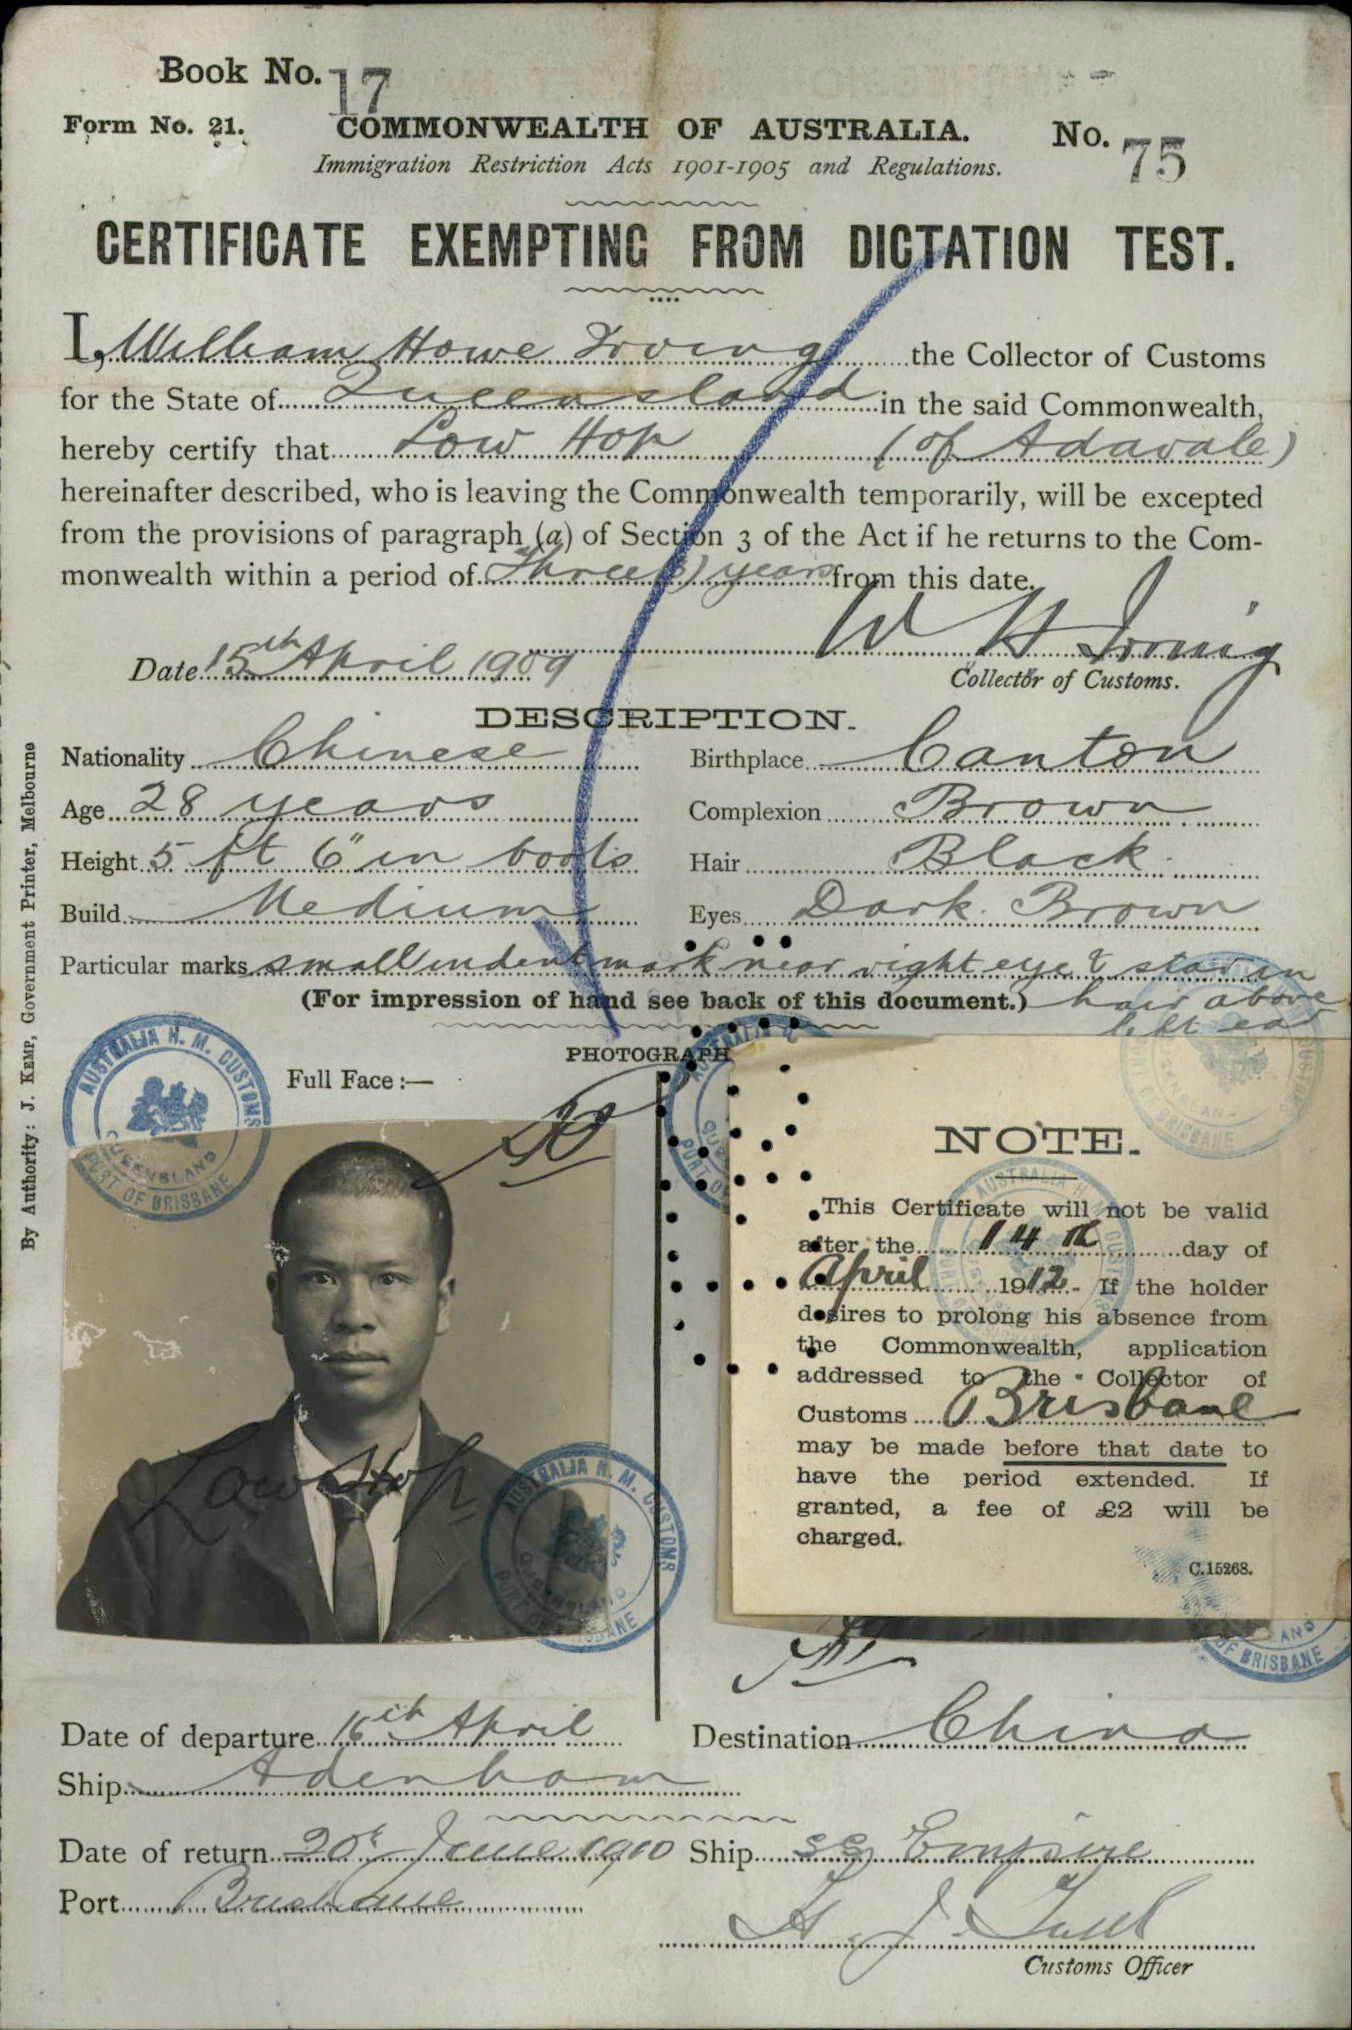 Book No. 17
Form No. 21.
COMMONWEALTH OF AUSTRALIA.
No. 75
Immigration Restriction Acts 1901-1905 and Regulations.
CERTIFICATE EXEMPTING FROM DICTATION TEST.
I, William Howe Irving the Collector of Customs
for the State of Queensland in the said Commonwealth,
hereby certify that Low Hop (of Adavale)
hereinafter described, who is leaving the Commonwealth temporarily, will be excepted
from the provisions of paragraph (a) of Section 3 of the Act if he returns to the Com-
monwealth within a period of Three (3) years from this date.
W H Irving
Date 15th April 1909
Collector of Customs.
DESCRIPTION.
Nationality Chinese
Birthplace Canton
Age 28 years
Complexion Brown
Height 5 ft 6" in boots
Hair Black
Build Medium
Eyes Dark Brown
Particular marks small indent mark near right eye & star in
(For impression of hand see back of this document.) hair above
left ear
PHOTOGRAPH
Full Face :—
AUSTRALIA H. M. CUSTOMS
QUEENSLAND
PORT OF BRISBANE
Low Hop
AUSTRALIA H. M. CUSTOMS
QUEENSLAND
PORT OF BRISBANE
NOTE.
This Certificate will not be valid
after the 14th day of
April 1912. If the holder
desires to prolong his absence from
the Commonwealth, application
addressed to the Collector of
Customs Brisbane
may be made before that date to
have the period extended. If
granted, a fee of £2 will be
charged.
C.15268.
OF BRISBANE
Date of departure 16th April
Destination China
Ship Adenham
Date of return 20th June 1910
Ship SS Empire
Port Brisbane
Customs Officer
By Authority: J. KEMP, Government Printer, Melbourne